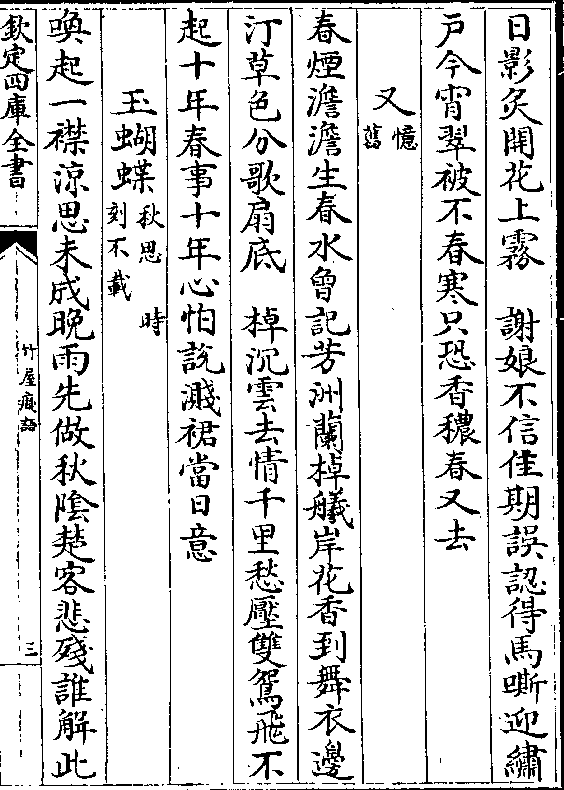 日影炙開花上霧　謝娘不信佳期誤認得馬嘶迎繡
戸今宵翠被不春寒只恐香穠春又去
又憶舊
春煙澹澹生春水曾記芳洲蘭棹艤岸花香到舞衣邊
汀草色分歌扇底　棹沉雲去情千里愁壓雙鴛飛不
起十年春事十年心怕説濺裙當日意
玉蝴蝶秋思　時刻不載
喚起一襟涼思未成晚雨先做秋陰楚客悲殘誰解此
欽定四庫全書
竹屋癡語
三